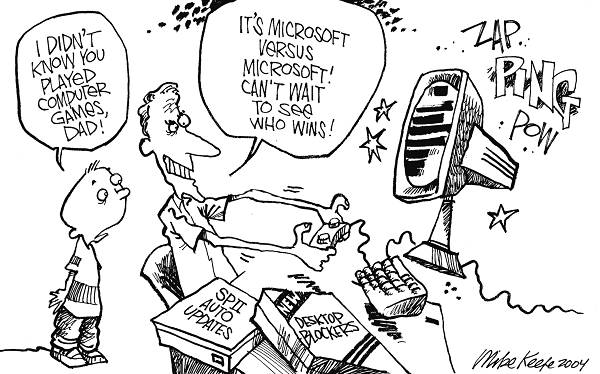 I DIDN'T
KNOW YOU
PLAYED
COMPUTER
GAMES,
DAD!
IT'S MICROSOFT
VERSUS
MICROSOFT!
CAN'T WAIT
TO SEE
WHO WINS!
ZAP
PING
POW
SPII
AUTO
UPDATES
NEW
DESKTOP
BLOCKERS
Mike Keefe 2004